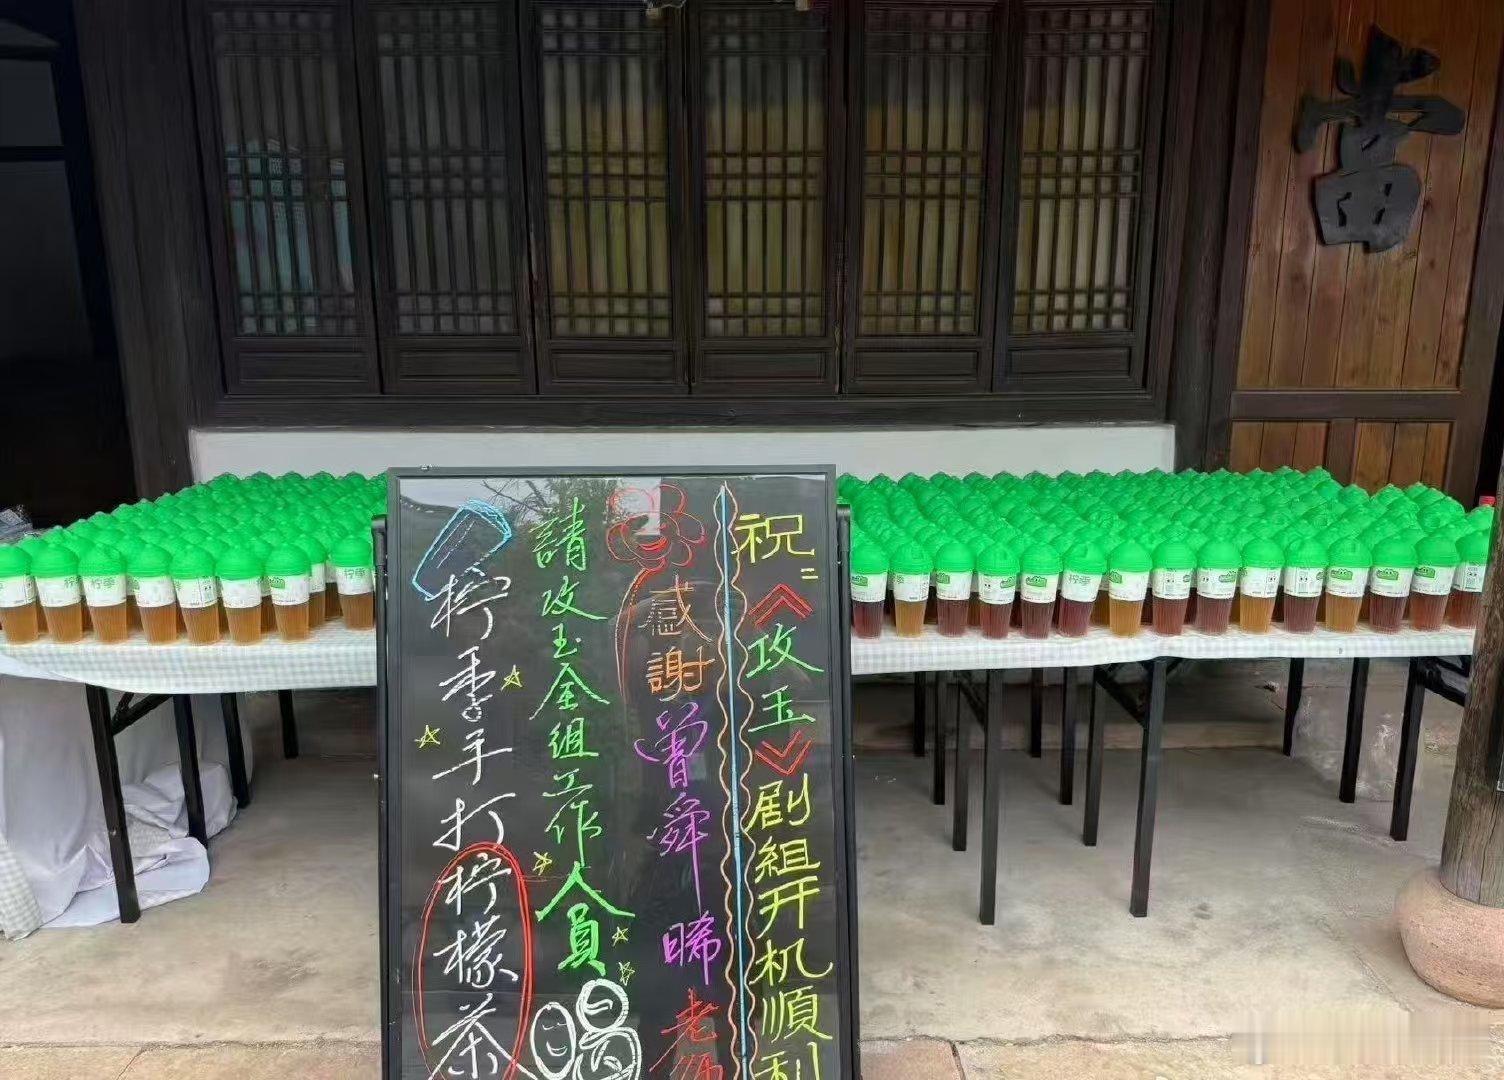 祝:《攻玉》剧組开机順利
感謝曾舜晞老师
請攻玉全組工作人員喝
柠季手打柠檬茶
柠季
柠季
柠季
柠季